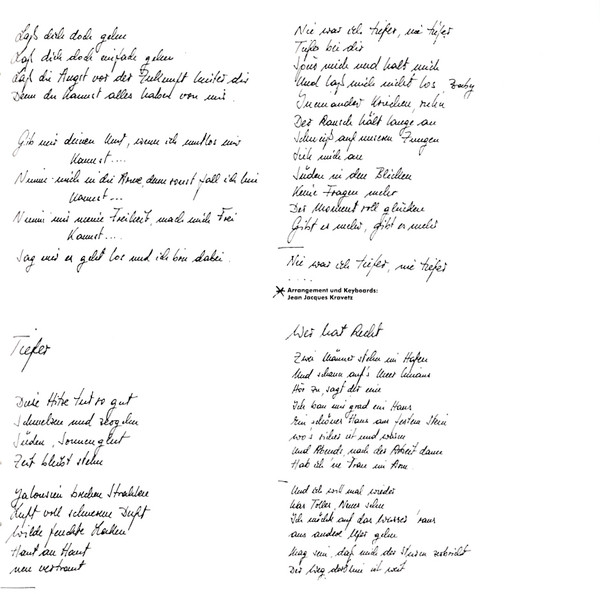 Laß dich doch gehn
Laß dich doch einfach gehn
Laß die Angst vor der Zukunft hinter dir
Denn du kannst alles haben von mir.
Gib mir deinen Mut, wenn ich mutlos bin
Kannst....
Nimm mich in die Arme, denn sonst fall ich hin
Kannst...
Nimm mir meine Freiheit, mach mich frei
Kannst...
Sag mir es geht los und ich bin dabei.
Tiefer
Diese Hitze tut so gut
Schmelzen und segeln
Süden, Sonnenglut
Zeit bleibt stehn
Jalousien brechen Strahlen
Luft voll schwerem Duft
Wilde feuchte
Haut an Haut
neu vertraut
Nie war ich tiefer, nie tiefer
Tiefer bei dir
Spür mich und halt mich
Und laß mich nicht los, Baby
Ineinander kriechen, ruhn
Der Rausch hält lange an
Schweiß auf unseren Zungen
Sieh mich an
Süden in den Blicken
Keine Fragen mehr
Der Moment voll glücken
Gibt es mehr, gibt es mehr
Nie war ich tiefer, nie tiefer
....
Arrangement und Keyboards:
Jean Jacques Kravetz
Wer hat Recht
Zwei Männer stehn im Hafen
Und schaun auf's Meer hinaus
Hör zu, sagt der eine
Ich bau mir grad ein Haus
Ein schönes Haus am festem Stein
wo's sicher ist und warm
Und Abends nach der Arbeit dann
Hab ich 'ne Frau im Arm
Und ich will mal wieder
was Tolles, Neues sehn
Ich möcht auf das Wasser raus
ans andere Ufer gehn
Mag sein, daß mich der Sturm zerbricht
Der Weg dorthin ist weit